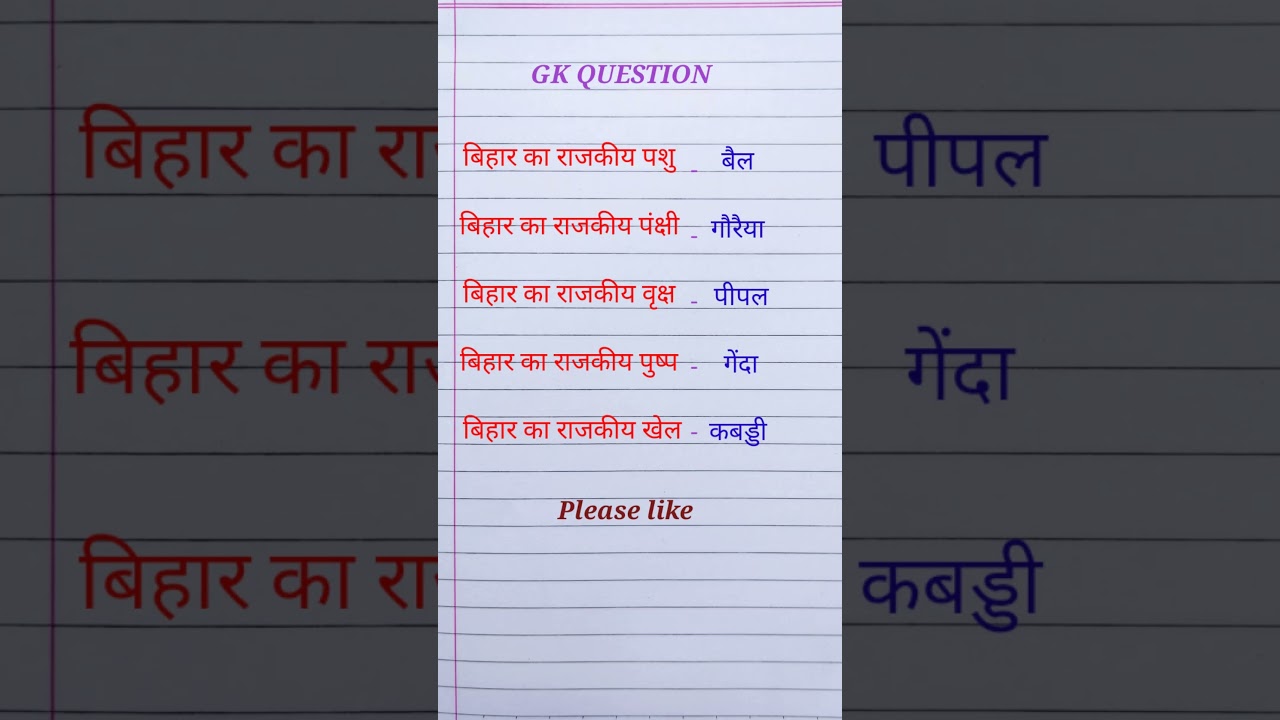 GK QUESTION
बिहार का राजकीय पशु - बैल
बिहार का राजकीय पंक्षी - गौरैया
बिहार का राजकीय वृक्ष - पीपल
बिहार का राजकीय पुष्प - गेंदा
बिहार का राजकीय खेल - कबड्डी
Please like
बिहार का रा
पीपल
बिहार का रा
गेंदा
बिहार का रा
कबड्डी